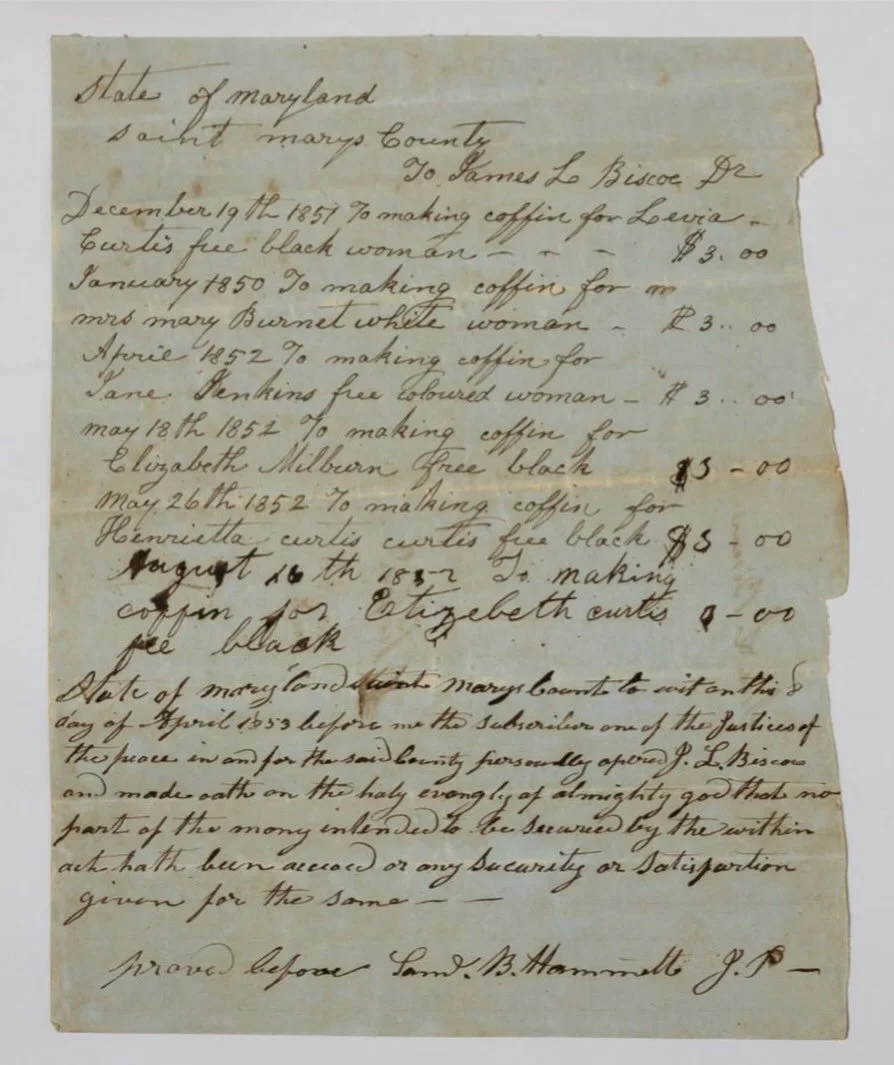 State of maryland
saint marys County
To James L Biscoe Dr
December 19th 1851 To making coffin for Levia -
Curtis free black woman - - - $3. 00
January 1850 To making coffin for m
mrs mary Burnet white woman - $3.. 00
April 1852 To making coffin for
Jane Jenkins free coloured woman - $3.. 00
may 18th 1852 To making coffin for
Elizabeth Milburn free black $3 - 00
may 26th 1852 To making coffin for
Henrietta curtis curtis free black $3 - 00
August 16th 1852 To making
coffin for Elizebeth curtis - 00
fee black
State of maryland Saint marys Count to wit on this 8
day of April 1853 before me the subscriber one of the Justices of
the peace in and for the said County personally apered J. L. Biscoe
and made oath on the holy evangly of almighty god that no
part of the mony intended to be secured by the within
act hath been or any security or satisfaction
given for the same - -
proved before Saml. B. Hammett J. P -